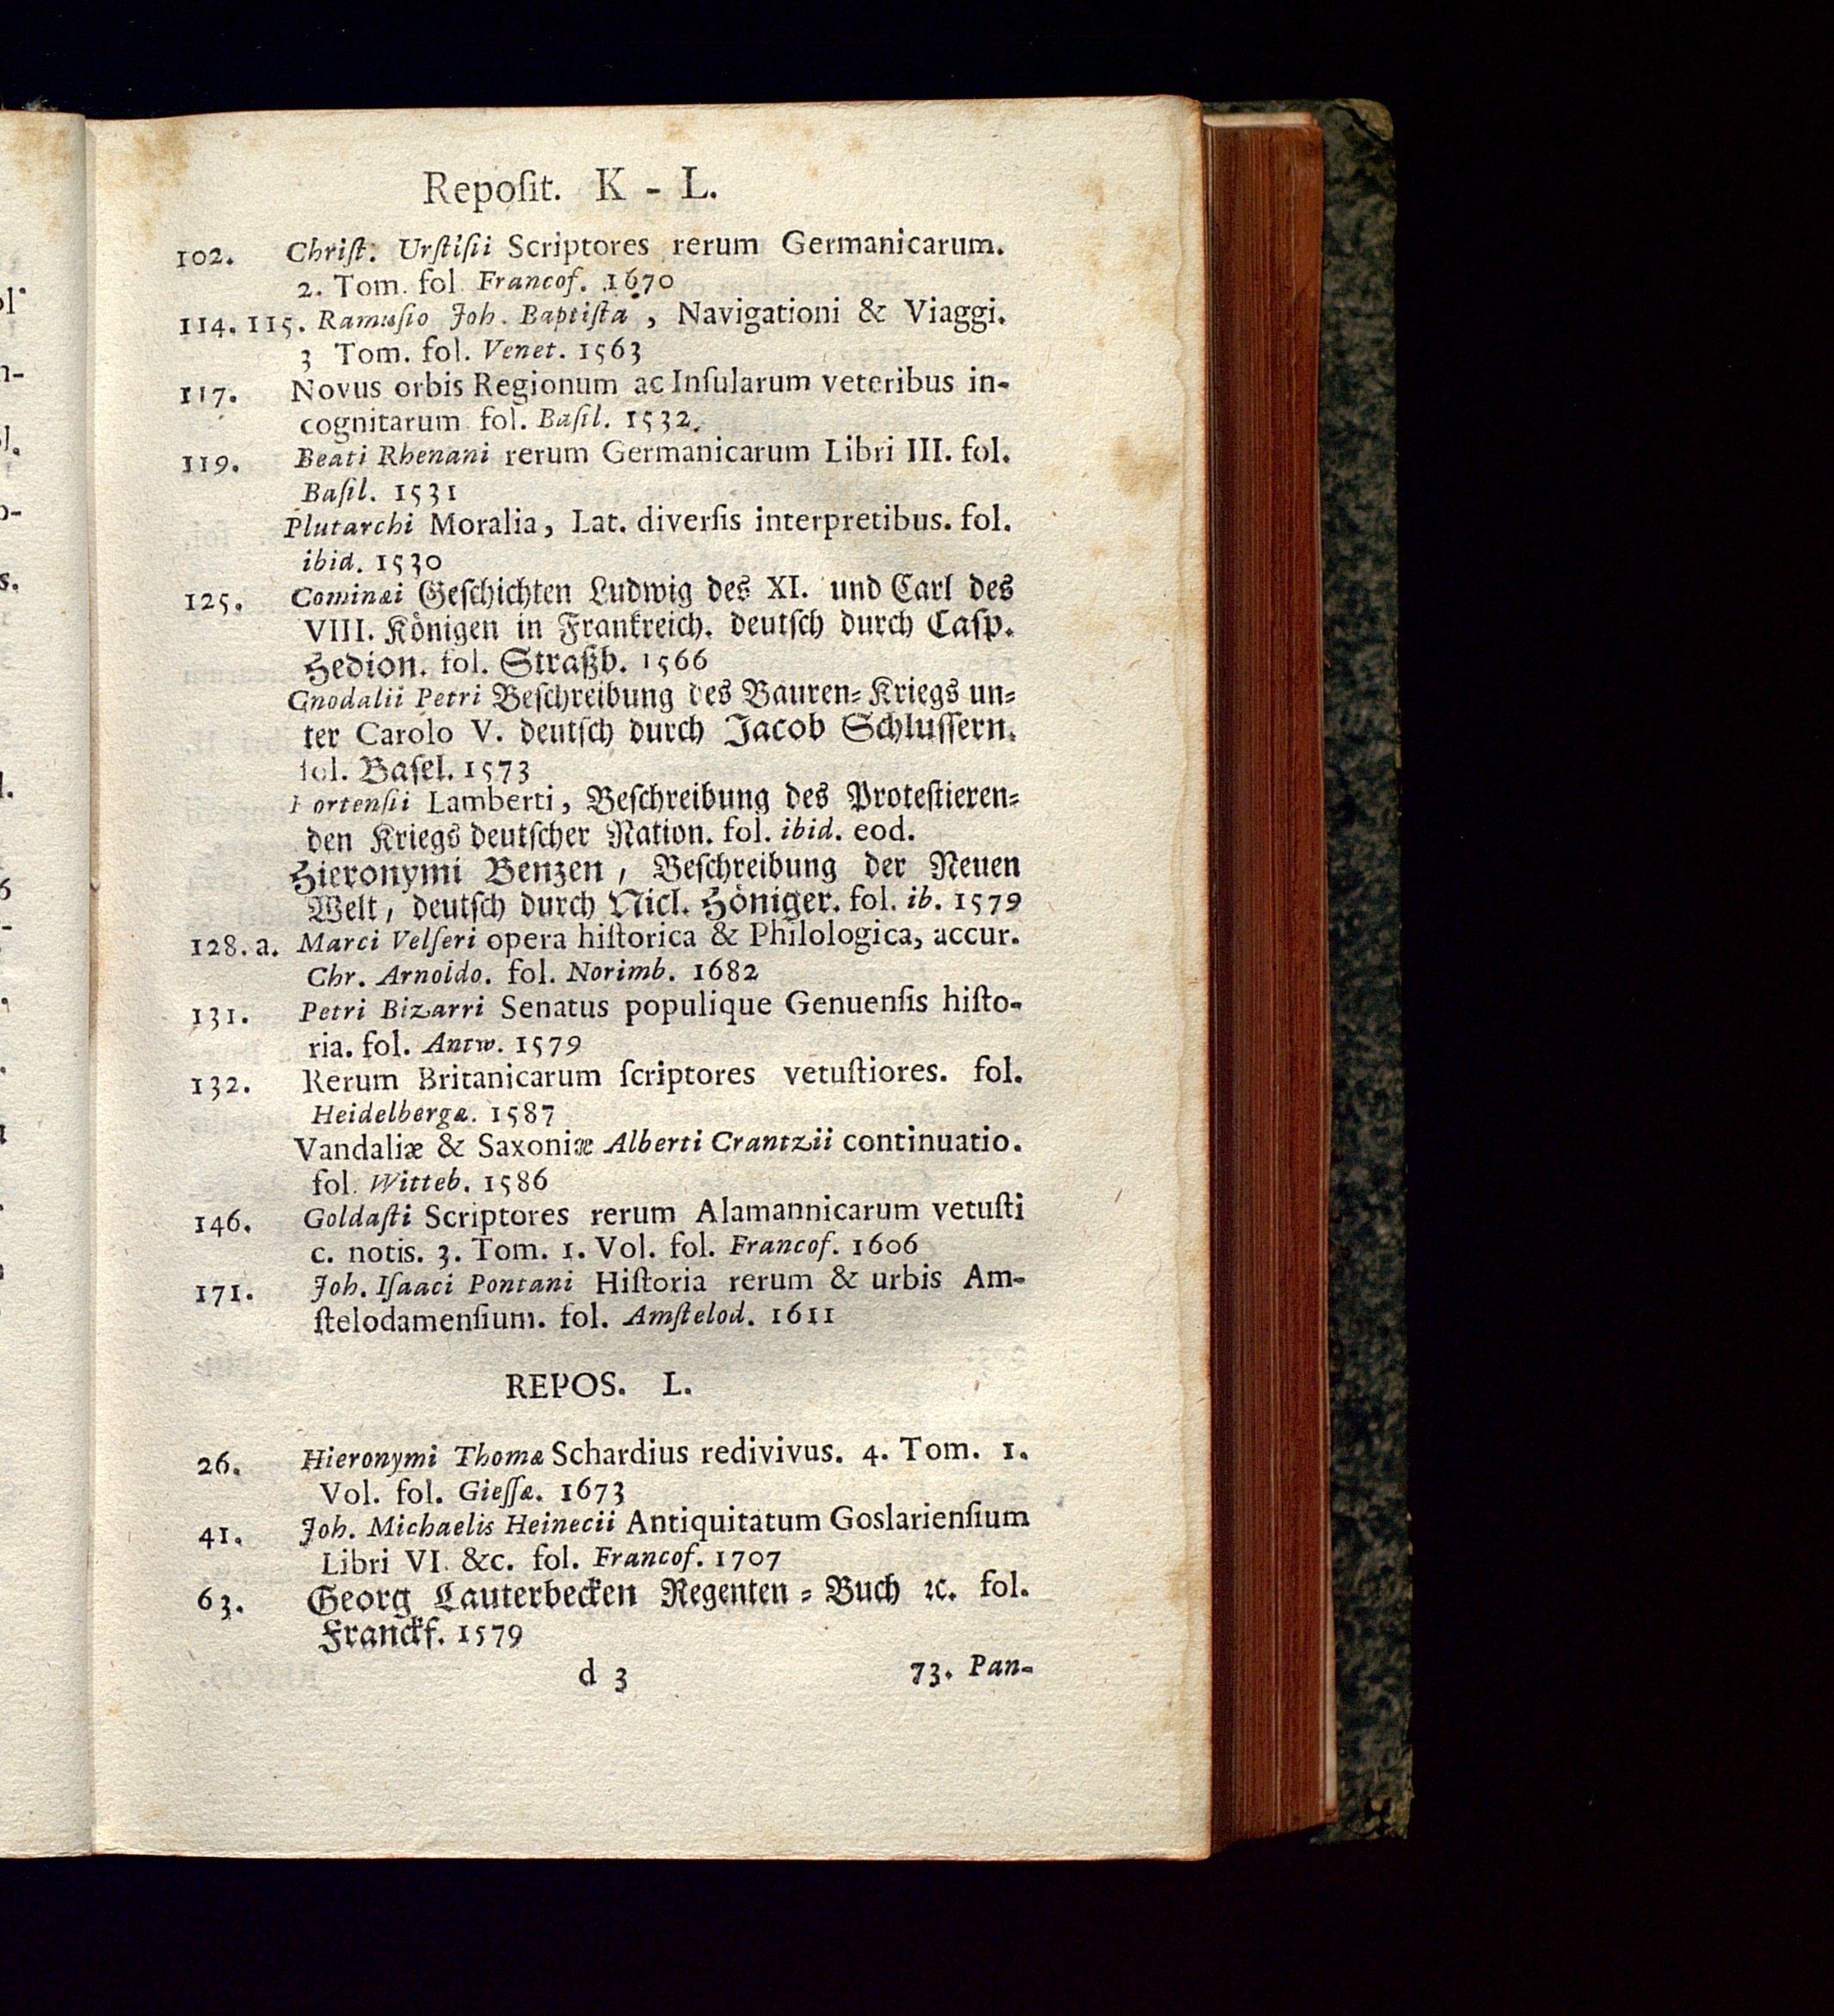 Reposit. K - L.
102. Christ: Urstisii Scriptores rerum Germanicarum.
2. Tom. fol Francof. 1670
114. 115. Ramusio Joh. Baptista, Navigationi & Viaggi.
3 Tom. fol. Venet. 1563
117. Novus orbis Regionum ac Insularum veteribus in-
cognitarum fol. Basil. 1532.
119. Beati Rhenani rerum Germanicarum Libri III. fol.
Basil. 1531
Plutarchi Moralia, Lat. diversis interpretibus. fol.
ibid. 1530
125. Cominæi Geschichten Ludwig des XI. und Carl des
VIII. Königen in Frankreich. deutsch durch Casp.
Hedion. fol. Straßb. 1566
Gnodalii Petri Beschreibung des Bauren-Kriegs un-
ter Carolo V. deutsch durch Jacob Schlussern.
fol. Basel. 1573
Hortensii Lamberti, Beschreibung des Protestieren-
den Kriegs deutscher Nation. fol. ibid. eod.
Hieronymi Benzen, Beschreibung der Neuen
Welt, deutsch durch Nicl. Höniger. fol. ib. 1579
128. a. Marci Velseri opera historica & Philologica, accur.
Chr. Arnoldo. fol. Norimb. 1682
131. Petri Bizarri Senatus populique Genuensis histo-
ria. fol. Antw. 1579
132. Rerum Britanicarum scriptores vetustiores. fol.
Heidelbergæ. 1587
Vandaliæ & Saxoniæ Alberti Crantzii continuatio.
fol. Witteb. 1586
146. Goldasti Scriptores rerum Alamannicarum vetusti
c. notis. 3. Tom. 1. Vol. fol. Francof. 1606
171. Joh. Isaaci Pontani Historia rerum & urbis Am-
stelodamensium. fol. Amstelod. 1611
REPOS. L.
26. Hieronymi Thomæ Schardius redivivus. 4. Tom. 1.
Vol. fol. Giessæ. 1673
41. Joh. Michaelis Heinecii Antiquitatum Goslariensium
Libri VI. &c. fol. Francof. 1707
63. Georg Lauterbecken Regenten-Buch ꝛc. fol.
Franckf. 1579
d 3 73. Pan-